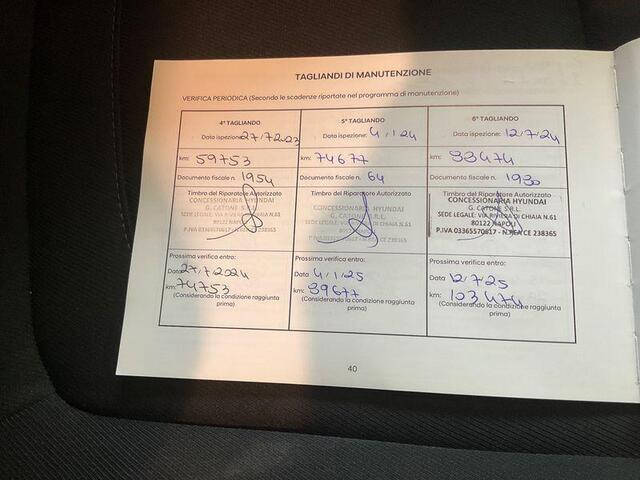 TAGLIANDI DI MANUTENZIONE
VERIFICA PERIODICA (Secondo le scadenze riportate nel programma di manutenzione)
4° TAGLIANDO
Data ispezione: 27/7/2023
km: 59753
Documento fiscale n. 1954
Timbro del Riparatore Autorizzato
CONCESSIONARIA HYUNDAI
G. CATONE S.R.L.
SEDE LEGALE: VIA RIVIERA DI CHIAIA N.61
80122 NAPOLI
P.IVA 03365570617 - N.REA CE 238365
Prossima verifica entro:
Data 27/7/2024
km: 74753
(Considerando la condizione raggiunta
prima)
5° TAGLIANDO
Data ispezione: 4/1/24
km: 74677
Documento fiscale n. 64
Timbro del Riparatore Autorizzato
CONCESSIONARIA HYUNDAI
G. CATONE S.R.L.
SEDE LEGALE: VIA RIVIERA DI CHIAIA N.61
80122 NAPOLI
P.IVA 03365570617 - N.REA CE 238365
Prossima verifica entro:
Data 4/1/25
km: 89677
(Considerando la condizione raggiunta
prima)
6° TAGLIANDO
Data ispezione: 12/7/24
km: 88474
Documento fiscale n. 1930
Timbro del Riparatore Autorizzato
CONCESSIONARIA HYUNDAI
G. CATONE S.R.L.
SEDE LEGALE: VIA RIVIERA DI CHIAIA N.61
80122 NAPOLI
P.IVA 03365570617 - N.REA CE 238365
Prossima verifica entro:
Data 12/7/25
km: 103474
(Considerando la condizione raggiunta
prima)
40